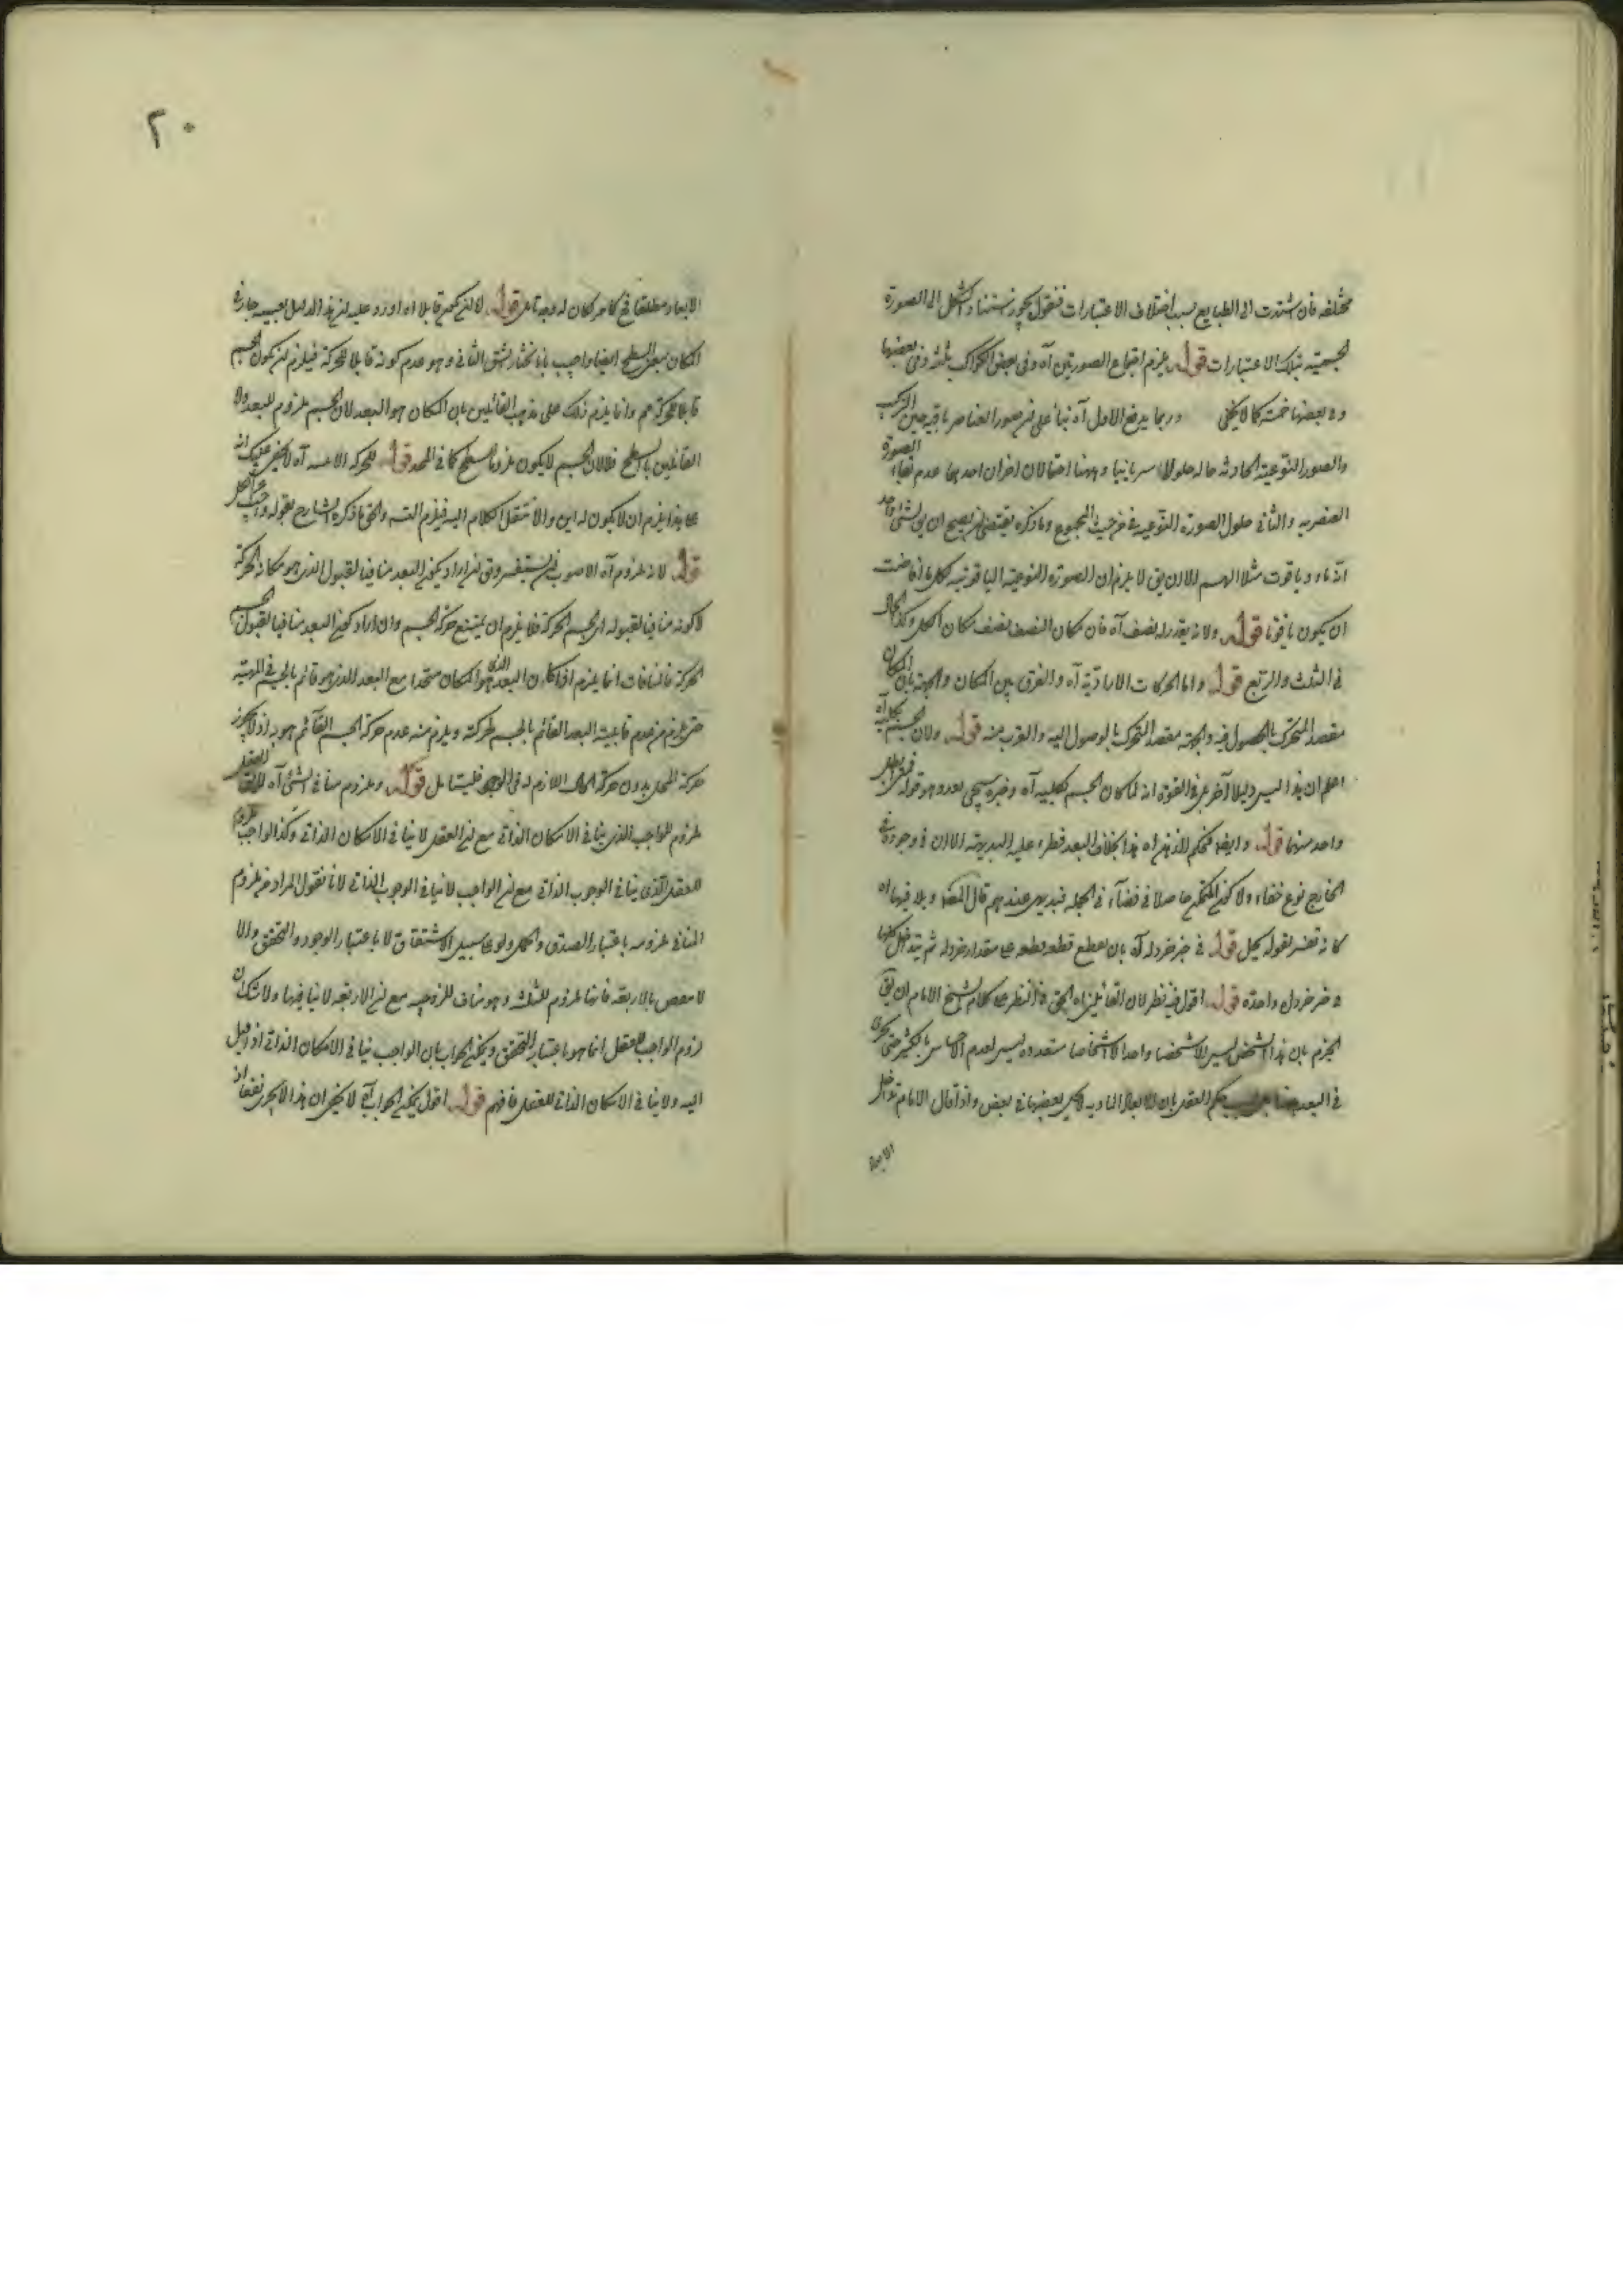 مختلفه فان استندت الى الطبايع بسبب اختلاف الاعتبارات فنقول يجوز استناد الشكل الى الصورة
الجسمية بتلك الاعتبارات قوله يلزم اجتماع الصورتين آه وفى بعض الكواكب ثلث وفى بعضها
وفى بعضها خمسة كما لا يخفى وربما يدفع الاول آه بناء على ان صور العناصر باقية حين التركيب
والصور النوعية الحادثه حاله حلولا سريانيا وههنا احتمالان اخران احدهما عدم بقاء الصورة
العنصريه والثانى حلول الصورة النوعيه فى المجموع وما ذكره يقتضى ان يصح ان يق لشئ واحد
انه ماء وياقوت مثلا اللهم الا ان يق لا يلزم ان الصورة النوعية الياقوتيه كلما افاضت
ان يكون ياقوتا قوله ولانه يقدر له نصف آه فان مكان النصف نصف مكان الكل وكذا الحال
فى الثلث والربع قوله واما الحركات الارادية آه والفرق بين المكان والجهة بان المكان
مقصد المتحرك بالحصول فيه والجهة مقصد المتحرك بالوصول اليه والقرب منه قوله ولان الجسم بكليته آه
اعلم ان هذا ليس دليلا آخر بل فى القوة انه لما كان الجسم بكليته آه وخبره سيجئ بعد وهو قوله
واحد منهما قوله وايضا آه هذا بخلاف البعد فطر عليه البديهة الا ان فى وجوده فى
الخارج نوع خفاء ولا كون المتحيز حاصلا فى فضاء فى الجملة فبديهى عندهم قال المص
كانه تفسير لقوله يحل قوله فى حيز خردلة آه بان يقطع قطعه قطعه على مقدار خردله ثم يتداخل كلها
فى حيز خردل واحدة قوله اقول فيه نظر لان القائلين آه الحق فى النظر على كلام الشيخ الامام ان يق
الجزم بان هذا الشخص ليس الا شخصا واحدا لا اشخاصا متعدده ليس لعدم الاحساس بالتكثر حتى يجرى
فى البعد يحكم العقل بان الابعاد الماديه لا يحل بعضها فى بعض واذا قال الامام تداخل
الابعاد
٢٠
الابعاد مطلقا كان له وجه تامل قوله لا ان يكون قابلا آه اورد عليه ان هذا الدليل بعينه جار فى
المكان بمعنى السطح ايضا واجيب بانا نختار الشق الثانى وهو عدم كونه قابلا للحركة فيلزم ان يكون الجسم
قابلا للحركة وانما يلزم ذلك على مذهب القائلين بان المكان هو البعد لان الجسم ملزوم للبعد ولا
القائلين بالسطح فلان الجسم لا يكون ملزوما لسطح كما فى المحدد قوله للحركة الاينيه آه لا يخفى عليك انه
على هذا يلزم ان لا يكون له اين والا ننقل الكلام اليه فيلزم التسه والحق ما ذكره الشارح بقوله
قوله لانه ملزوم آه الاصوب ان يستفسر ويق ان اراد بكون البعد منافيا لقبول الذى هو مكانه الحركة
لا كونه منافيا لقبوله اى الجسم الحركة فلا يلزم ان يمتنع حركة الجسم وان اراد كون البعد منافيا لقبول الجسم
الحركة فالمنافات انما يلزم اذا كان البعد الذى هو المكان متحدا مع البعد الذى هو قائم بالجسم فى المهية
حتى يلزم من عدم قابلية البعد القائم بالجسم لحركته ويلزم منه عدم حركة الجسم القائم هو به اذ لا يجوز
حركة المحل بدون حركة الحال اللازم له فى الوجود فليتامل قوله وملزوم منافى الشئ آه
ملزوم للواجب الذى ينافى الامكان الذاتى مع ان العقل لا ينافى الامكان الذاتى وكذا الواجب ملزوم
للعقل الذى ينافى الوجوب الذاتى مع ان الواجب لا ينافى الوجوب الذاتى لانا نقول المراد من ملزوم
المنافى ملزومه باعتبار الصدق والحمل ولو على سبيل الاشتقاق لا باعتبار الوجود والتحقق والا
لانتقض بالاربعة فانها ملزوم للثلث وهو مناف للزوجيه مع ان الاربعة لا ينافيها ولا شك ان
لزوم الواجب للعقل انما هو باعتبار التحقق ويمكن الجواب بان الواجب ينافى الامكان الذاتى
اليه ولا ينافى الامكان الذاتى للعقل فافهم قوله اقول يمكن الجواب آه لا يخفى ان هذا لا يجرى نفعا